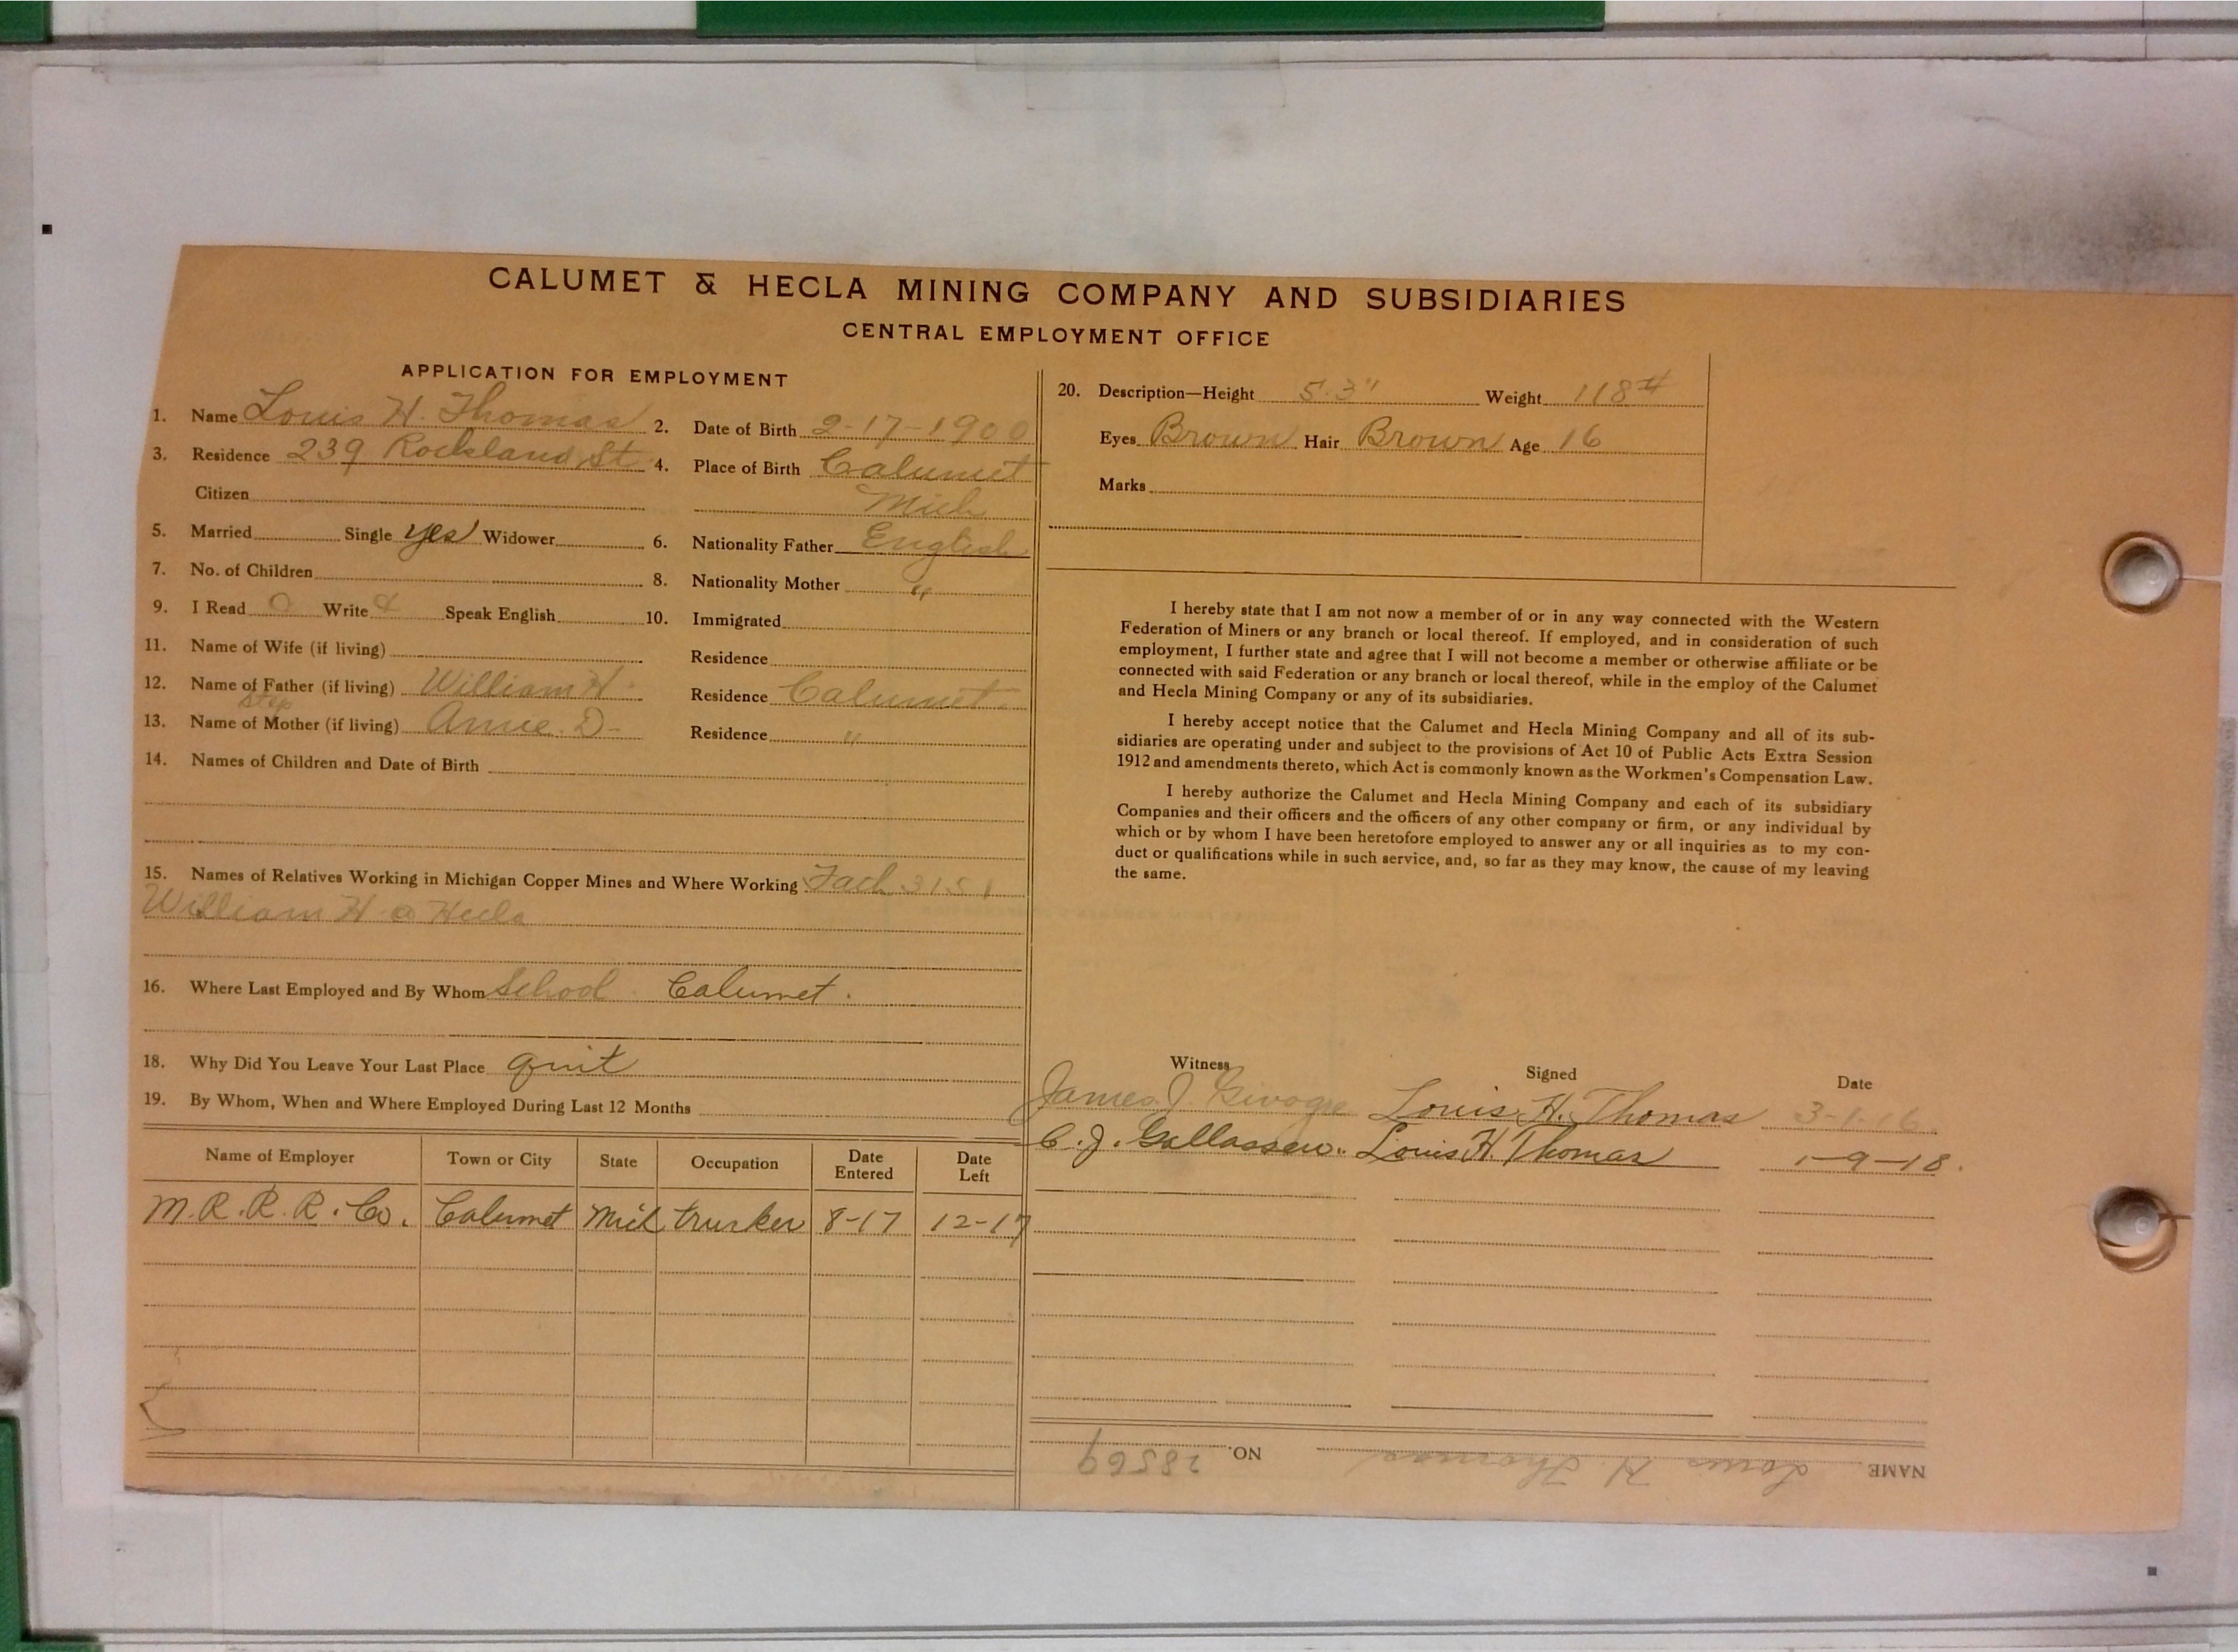 CALUMET & HECLA MINING COMPANY AND SUBSIDIARIES
CENTRAL EMPLOYMENT OFFICE
APPLICATION FOR EMPLOYMENT
1. Name Louis H. Thomas 2. Date of Birth 2-17-1900
3. Residence 239 Rockland St. 4. Place of Birth Calumet
Citizen Mich
5. Married Single yes Widower 6. Nationality Father English
7. No. of Children 8. Nationality Mother "
9. I Read Write Speak English 10. Immigrated
11. Name of Wife (if living) Residence
12. Name of Father (if living) William H. Residence Calumet.
step
13. Name of Mother (if living) Annie. D- Residence "
14. Names of Children and Date of Birth
15. Names of Relatives Working in Michigan Copper Mines and Where Working Fath 3151
William H @ Hecla
16. Where Last Employed and By Whom School Calumet.
18. Why Did You Leave Your Last Place quit
19. By Whom, When and Where Employed During Last 12 Months
Name of Employer Town or City State Occupation Date Entered Date Left
M.R.R.R. Co. Calumet Mich trucker 8-17 12-17
20. Description—Height 5'3" Weight 118#
Eyes Brown Hair Brown Age 16
Marks
I hereby state that I am not now a member of or in any way connected with the Western
Federation of Miners or any branch or local thereof. If employed, and in consideration of such
employment, I further state and agree that I will not become a member or otherwise affiliate or be
connected with said Federation or any branch or local thereof, while in the employ of the Calumet
and Hecla Mining Company or any of its subsidiaries.
I hereby accept notice that the Calumet and Hecla Mining Company and all of its sub-
sidiaries are operating under and subject to the provisions of Act 10 of Public Acts Extra Session
1912 and amendments thereto, which Act is commonly known as the Workmen's Compensation Law.
I hereby authorize the Calumet and Hecla Mining Company and each of its subsidiary
Companies and their officers and the officers of any other company or firm, or any individual by
which or by whom I have been heretofore employed to answer any or all inquiries as to my con-
duct or qualifications while in such service, and, so far as they may know, the cause of my leaving
the same.
Witness Signed Date
James J. Louis H. Thomas 3-1-16
C. J. Louis H Thomas 1-9-18.
NAME Louis H. Thomas NO. 28569